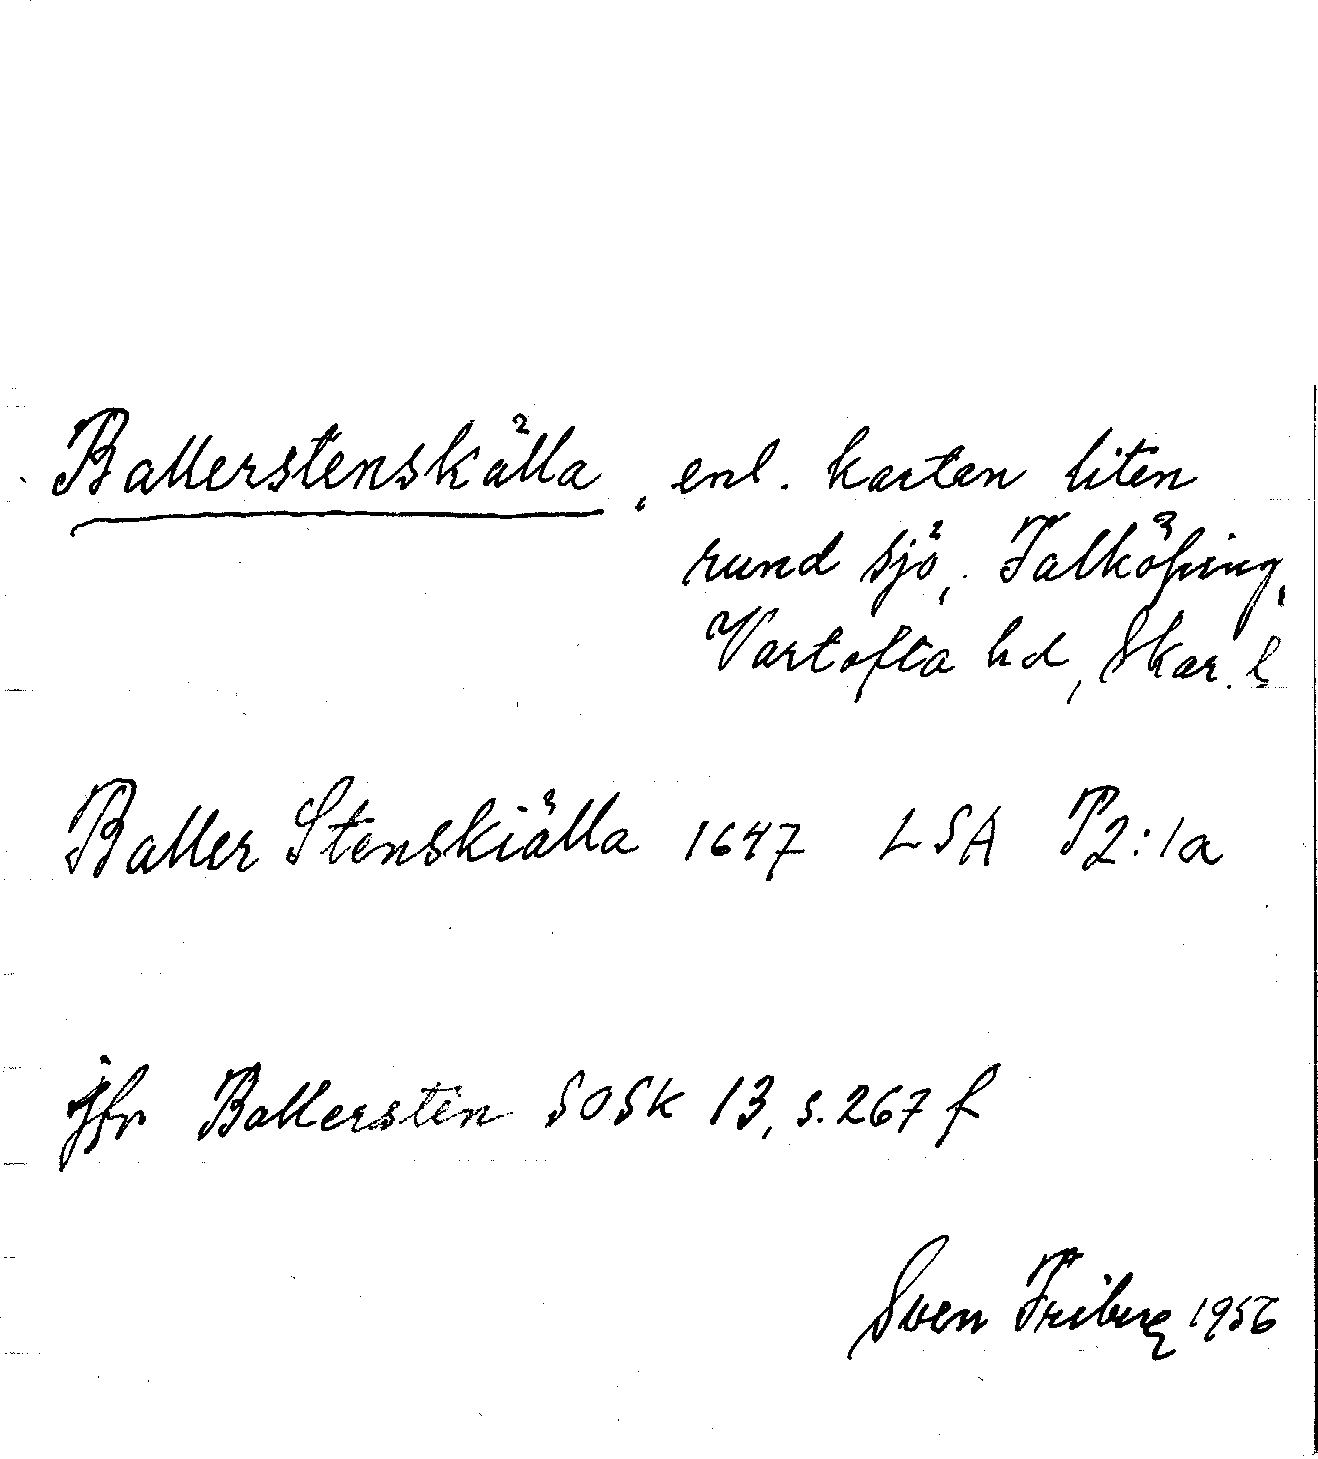 Ballerstenskälla, enl. kartan liten
rund sjö, Falköping,
Vartofta hd, Skar. l
Baller Stenskiälla 1647 LSA P2:1a
jfr Ballersten SOSk 13, s. 267 f
Sven Friberg 1956